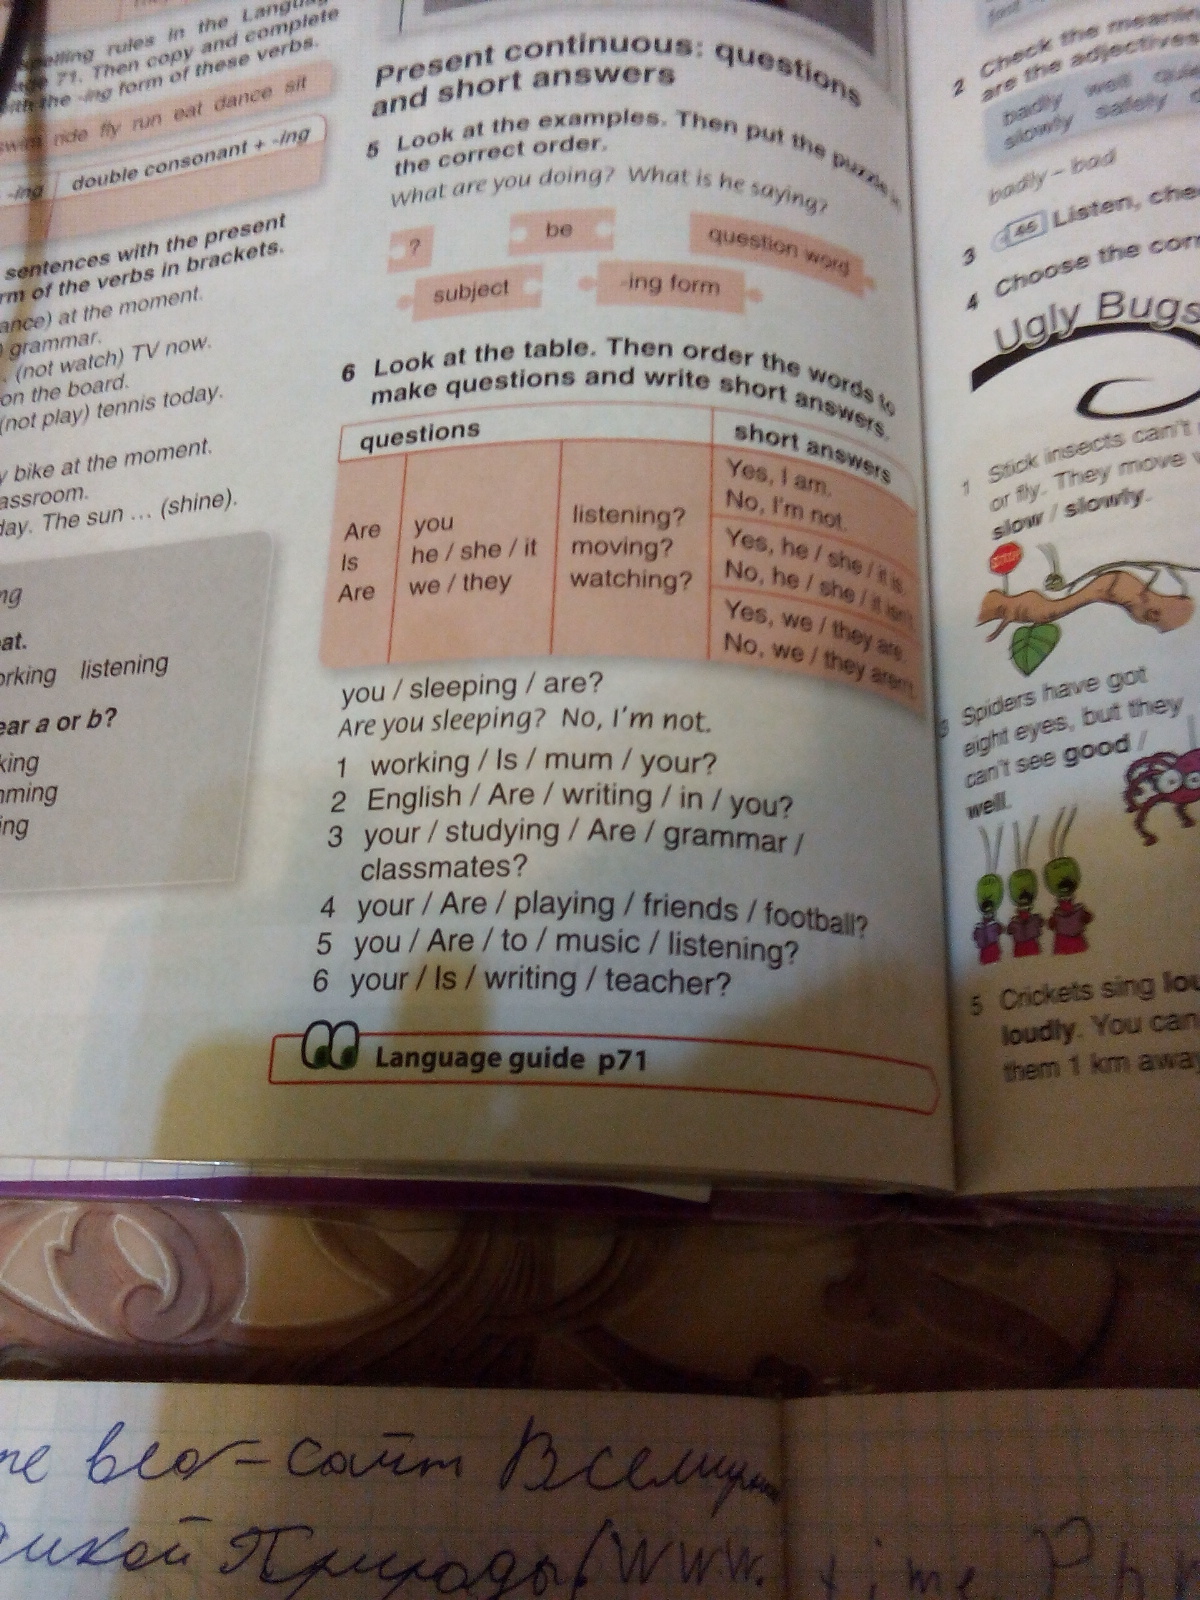 spelling rules in the Language
71. Then copy and complete
with the -ing form of these verbs.
swim ride fly run eat dance sit
-ing double consonant + -ing
sentences with the present
of the verbs in brackets.
at the moment.
grammar.
(not watch) TV now.
on the board.
(not play) tennis today.
bike at the moment.
day. The sun … (shine).
listening
a or b?
Present continuous: questions
and short answers
5 Look at the examples. Then put the puzzle in
the correct order.
What are you doing? What is he saying?
? be question word
subject -ing form
6 Look at the table. Then order the words to
make questions and write short answers.
questions short answers
Are you listening?
Is he / she / it moving?
Are we / they watching?
Yes, I am.
No, I'm not.
Yes, he / she / it is.
No, he / she / it isn't.
Yes, we / they are.
No, we / they aren't.
you / sleeping / are?
Are you sleeping? No, I'm not.
1 working / Is / mum / your?
2 English / Are / writing / in / you?
3 your / studying / Are / grammar /
classmates?
4 your / Are / playing / friends / football?
5 you / Are / to / music / listening?
6 your / Is / writing / teacher?
Language guide p71
2 Check the
are the adjectives
badly well
slowly safely
badly – bad
3 46 Listen,
4 Choose the
Ugly Bugs
1 Stick insects can't
or fly. They move
slow / slowly.
STOP
Spiders have got
eight eyes, but they
can't see good /
well.
5 Crickets sing
loudly. You can
them 1 km away
сайт
Природы (WWW.